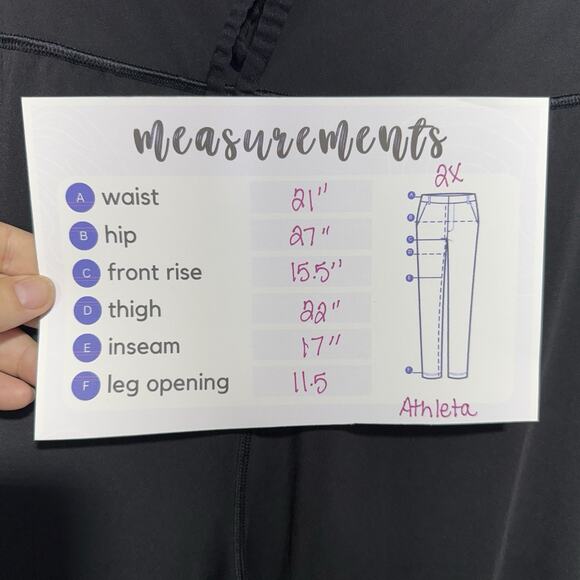 measurements
2X
A waist 21"
B hip 27"
C front rise 15.5"
D thigh 22"
E inseam 17"
F leg opening 11.5
Athleta